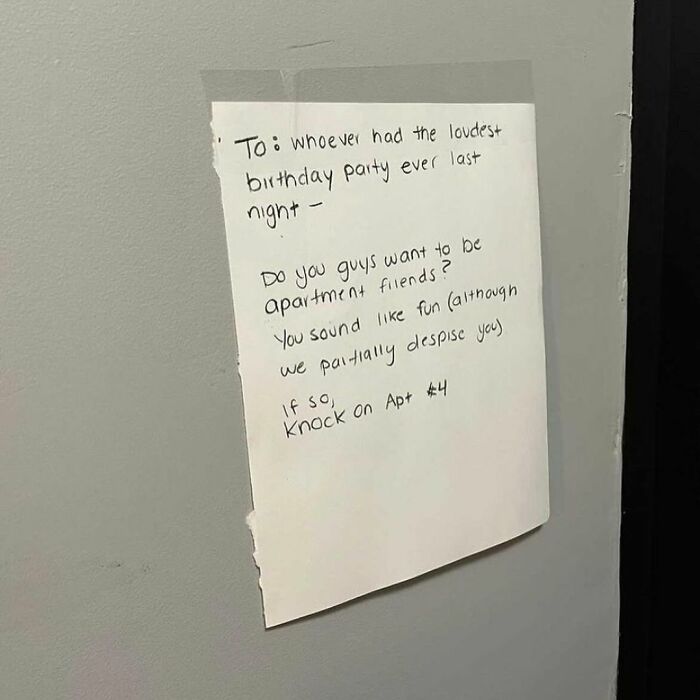 To: whoever had the loudest
birthday party ever last
night –
Do you guys want to be
apartment friends?
You sound like fun (although
we partially despise you)
if so,
Knock on Apt #4